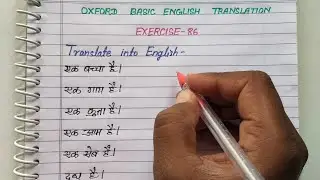 OXFORD BASIC ENGLISH TRANSLATION
EXERCISE-86
Translate into English-
एक बच्चा है।
एक गाय है।
एक कुत्ता है।
एक आम है।
एक सेब है।
दवा है।